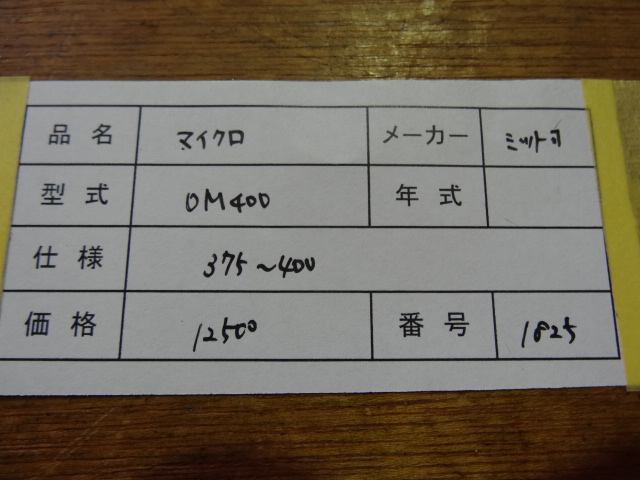 品名 マイクロ メーカー ミツトヨ
型式 OM400 年式
仕様 375~400
価格 12500 番号 1825